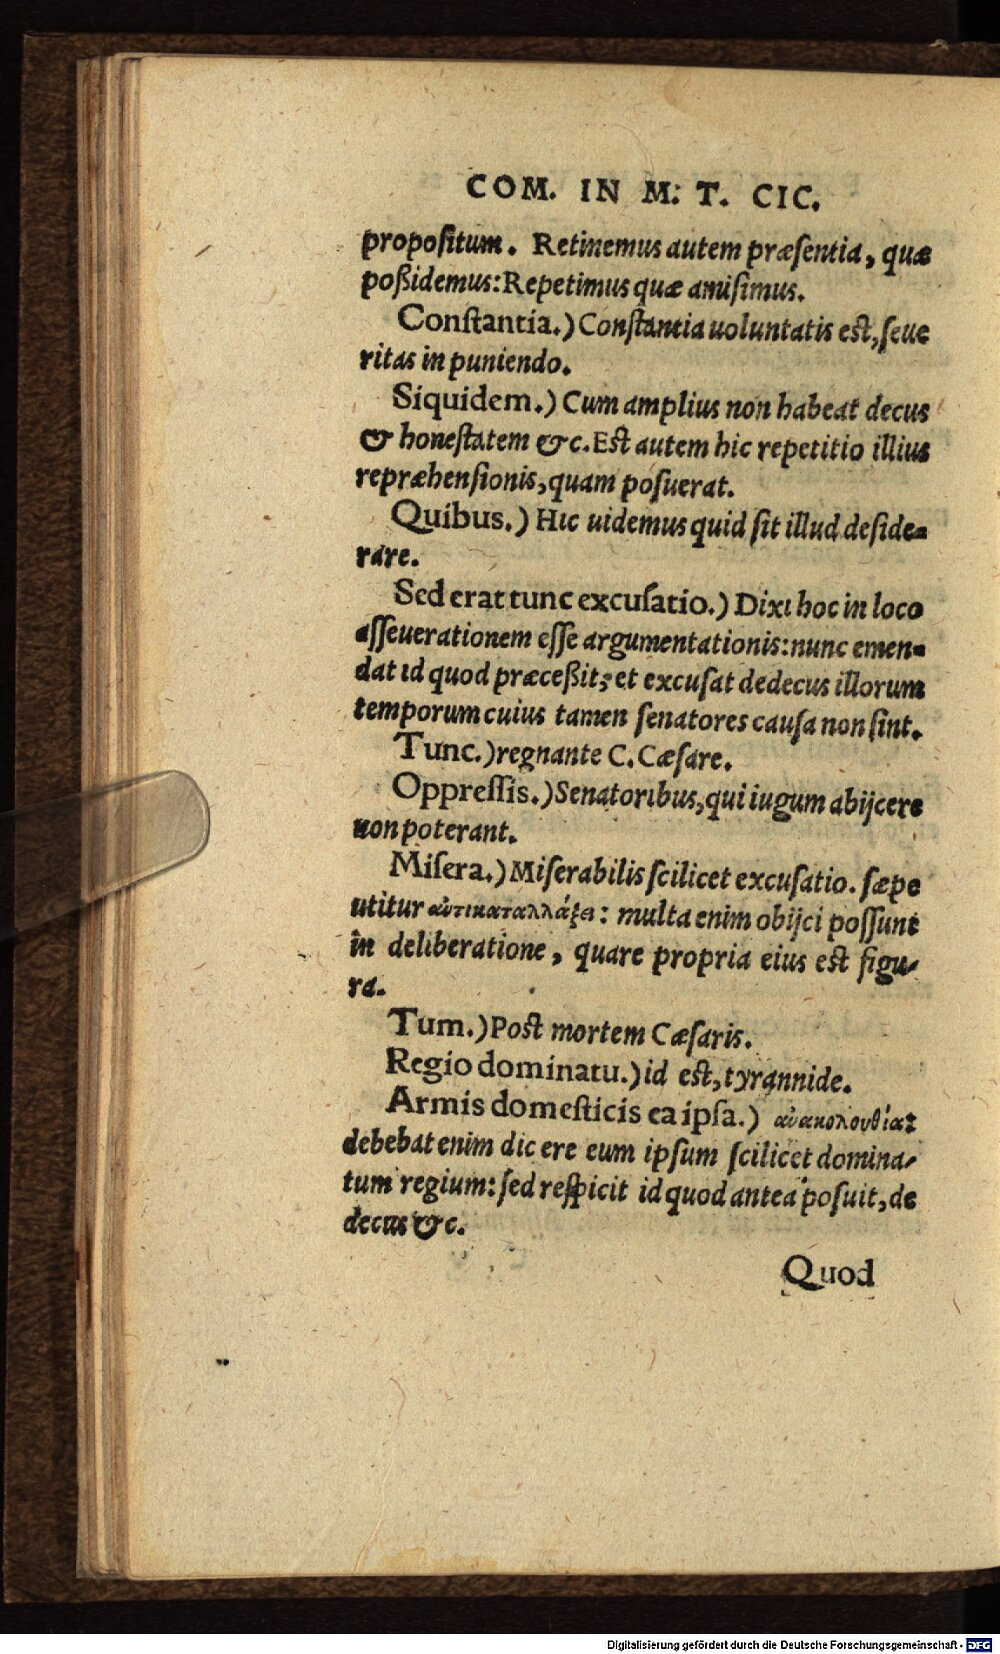 COM. IN M. T. CIC.
propoſitum. Retinemus autem præſentia, quæ
poßidemus: Repetimus quæ amiſimus.
Conſtantia.) Conſtantia uoluntatis est, ſeue
ritas in puniendo.
Siquidem.) Cum amplius non habeat decus
& honeſtatem &c. Est autem hic repetitio illius
repræhenſionis, quam poſuerat.
Quibus.) Hic uidemus quid ſit illud deſide-
rare.
Sed erat tunc excuſatio.) Dixi hoc in loco
aſſeuerationem eſſe argumentationis: nunc emen-
dat id quod præceßit; et excuſat dedecus illorum
temporum cuius tamen ſenatores cauſa non ſint.
Tunc.) regnante C. Cæſare.
Oppreſſis.) Senatoribus, qui iugum abijcere
non poterant.
Miſera.) Miſerabilis ſcilicet excuſatio. ſæpe
utitur αὐτικαταλλάξει: multa enim obijci poſſunt
in deliberatione, quare propria eius est figu-
ra.
Tum.) Post mortem Cæſaris.
Regio dominatu.) id est, tyrannide.
Armis domeſticis ea ipſa.) αὐακολουθία:
debebat enim dic ere eum ipſum ſcilicet domina-
tum regium: ſed reſpicit id quod antea poſuit, de
decus &c.
Quod
Digitalisierung gefördert durch die Deutsche Forschungsgemeinschaft - DFG